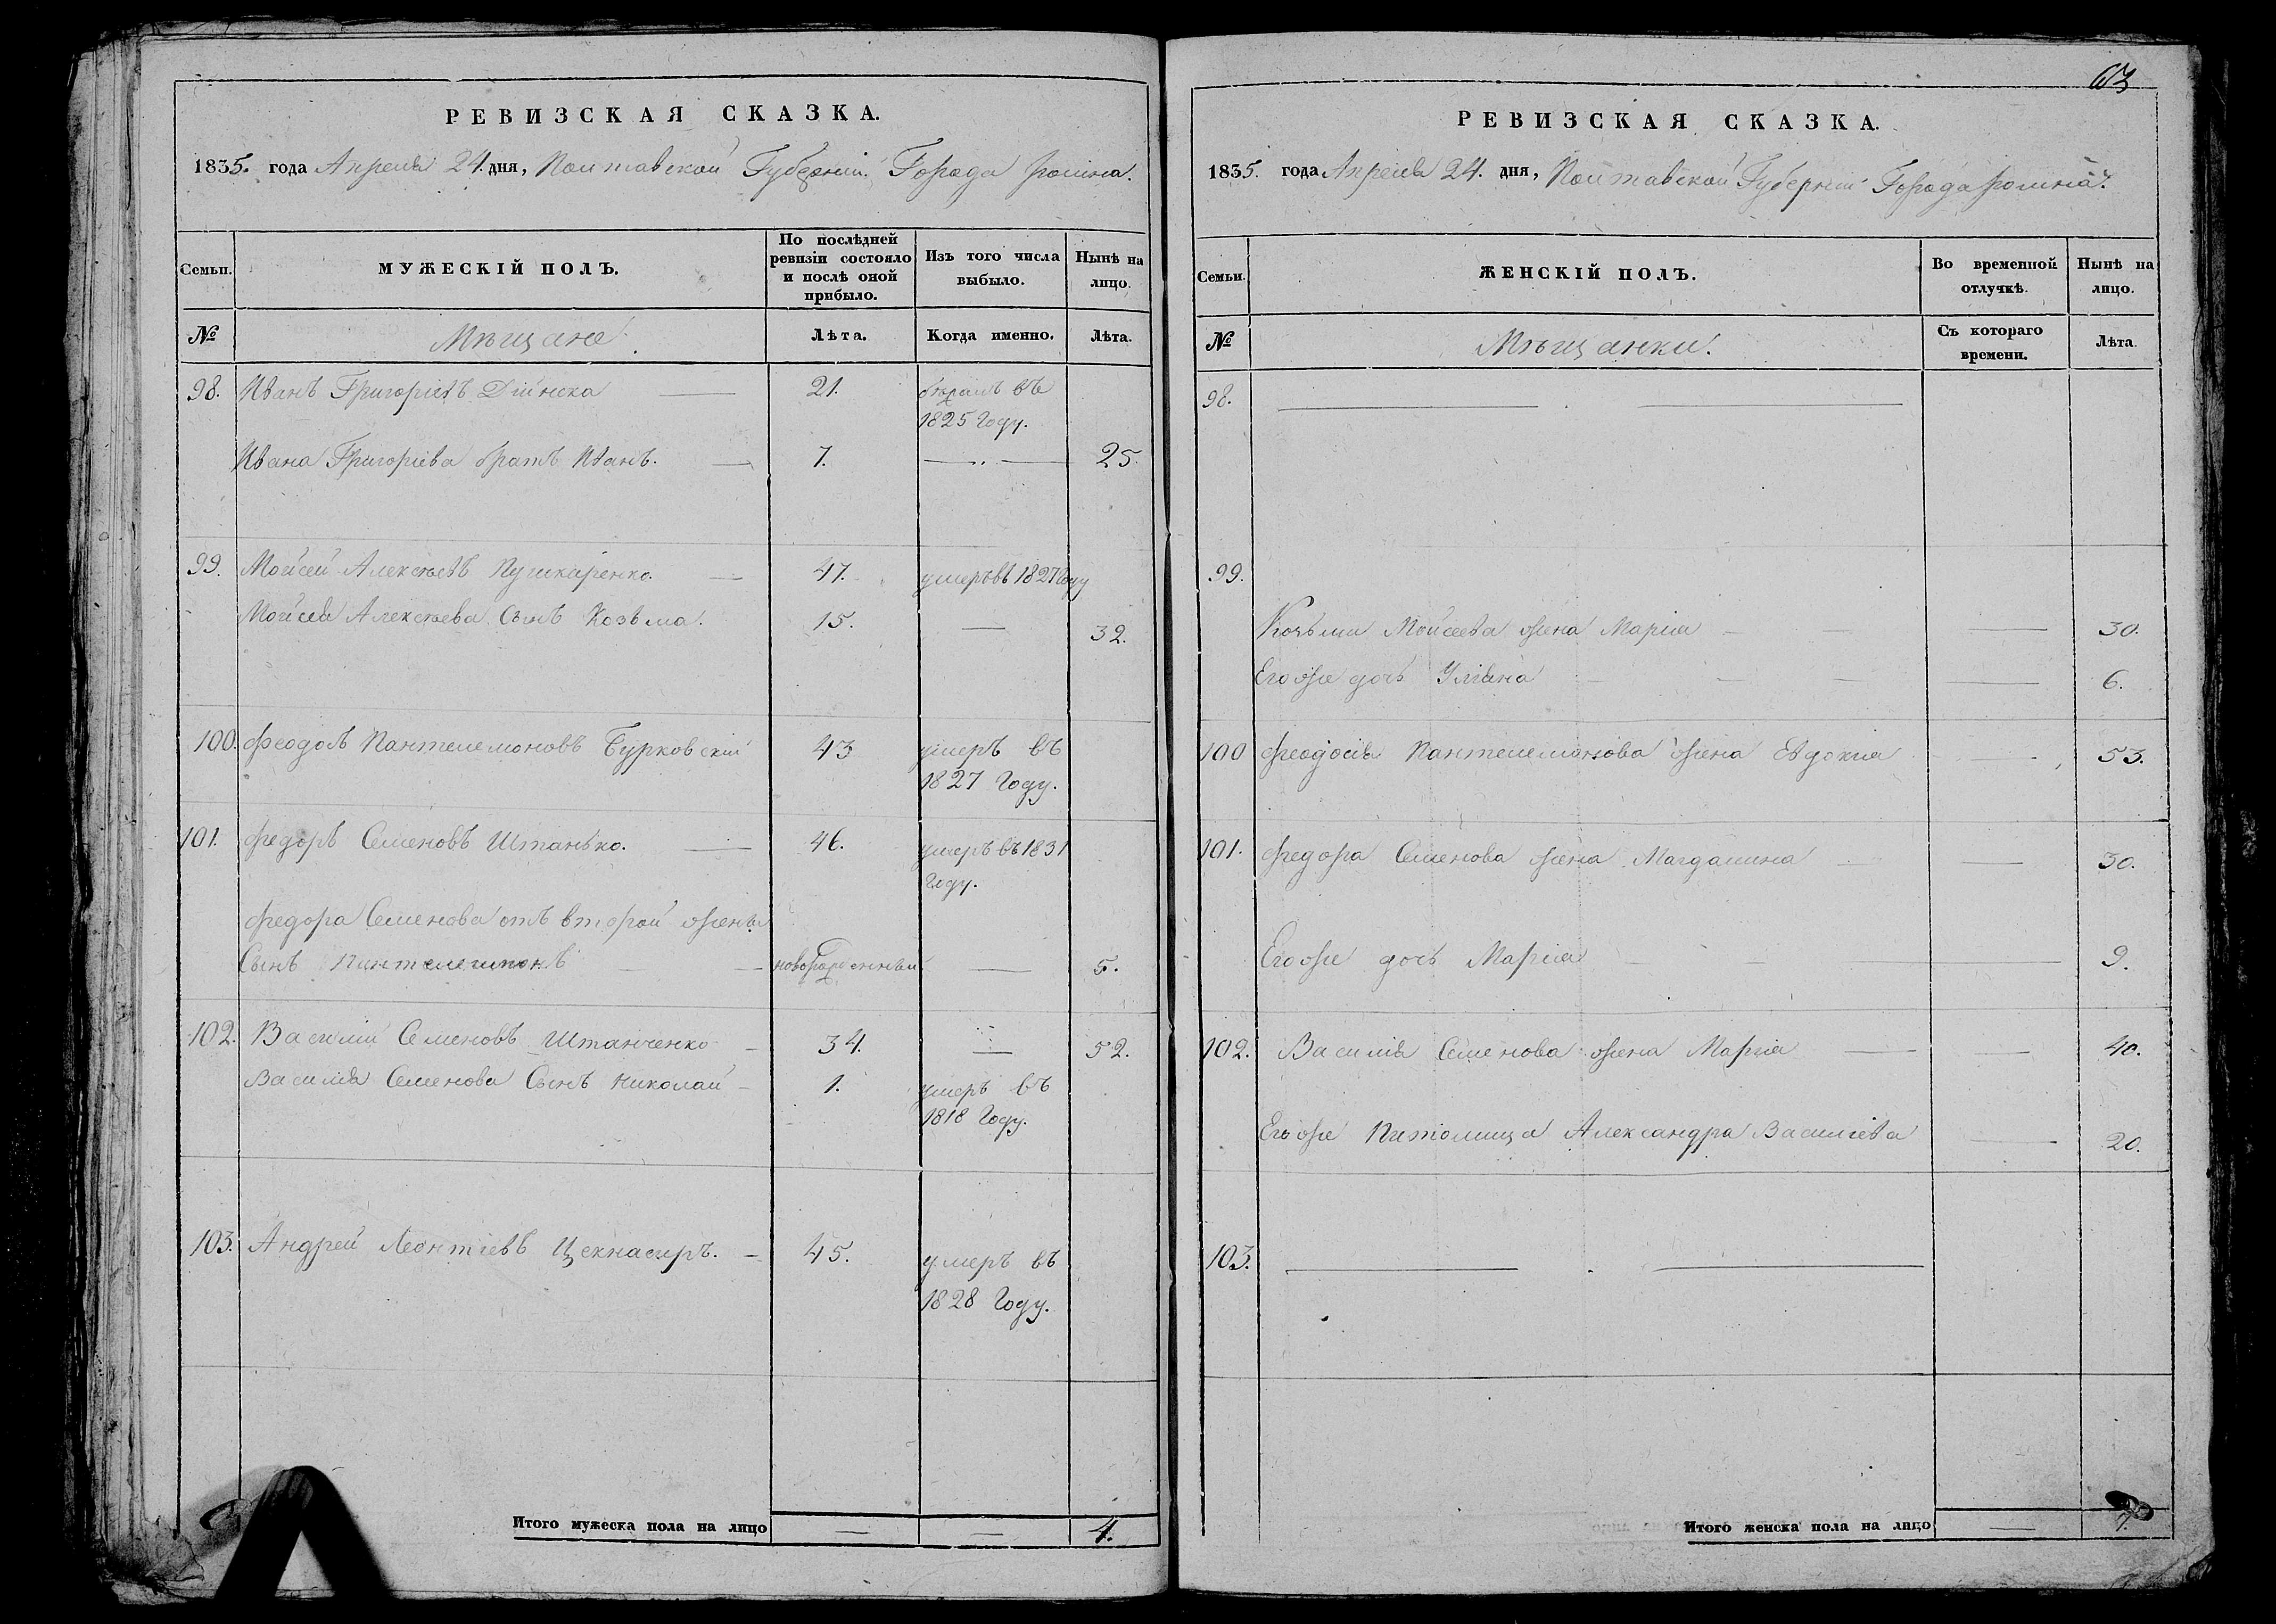 РЕВИЗСКАЯ СКАЗКА.
1835. года Апреля 24. дня, Полтавской Губерніи. Города Ромна.
Семьи.
МУЖЕСКІЙ ПОЛЪ.
По послѣдней ревизіи состояло и послѣ оной прибыло.
Изъ того числа выбыло.
Нынѣ на лицо.
№
Мѣщане
Лѣта.
Когда именно.
Лѣта.
98. Иванъ Григоріевъ 21. въ
1825 Году.
Ивана Григоріева братъ Иванъ. — 7. — 25.
99. Мойсей Алексѣевъ Пушкаренко. — 47. умеръ въ 1827 Году
Мойсея Алексѣева Сынъ Козьма. 15. — 32.
100. Пантелемоновъ Бурковскій 43 умеръ въ
1827 Году.
101. Федоръ Семеновъ Штанько. — 46. умеръ въ 1831
Году.
Федора Семенова отъ второй жены
Сынъ — новорожденный — 5.
102. Василій Семеновъ Штанченко — 34. — 52.
Василія Семенова Сынъ Николай — 1. умеръ въ
1818 Году.
103. Андрей Леонтіевъ — 45. умеръ въ
1828 Году.
Итого мужеска пола на лицо — — 4.
63
РЕВИЗСКАЯ СКАЗКА.
1835. года Апреля 24. дня, Полтавской Губерніи Города Ромна.
Семьи.
ЖЕНСКІЙ ПОЛЪ.
Во временной отлучкѣ.
Нынѣ на лицо.
№
Мѣщанки.
Съ котораго времени.
Лѣта.
98. — . —
99.
Козьми Мойсеева жена Марія — — — 30.
Его же дочь Уліяна — — — 6.
100 Феодосія Пантелемонова жена Евдокія — 53.
101. Федора Семенова жена Магдалина — — 30.
Его же дочь Марія — — 9.
102. Василія Семенова жена Марія — — 40.
Его же Питомица Александра Василіева — 20.
103. — . —
Итого женска пола на лицо — 7.